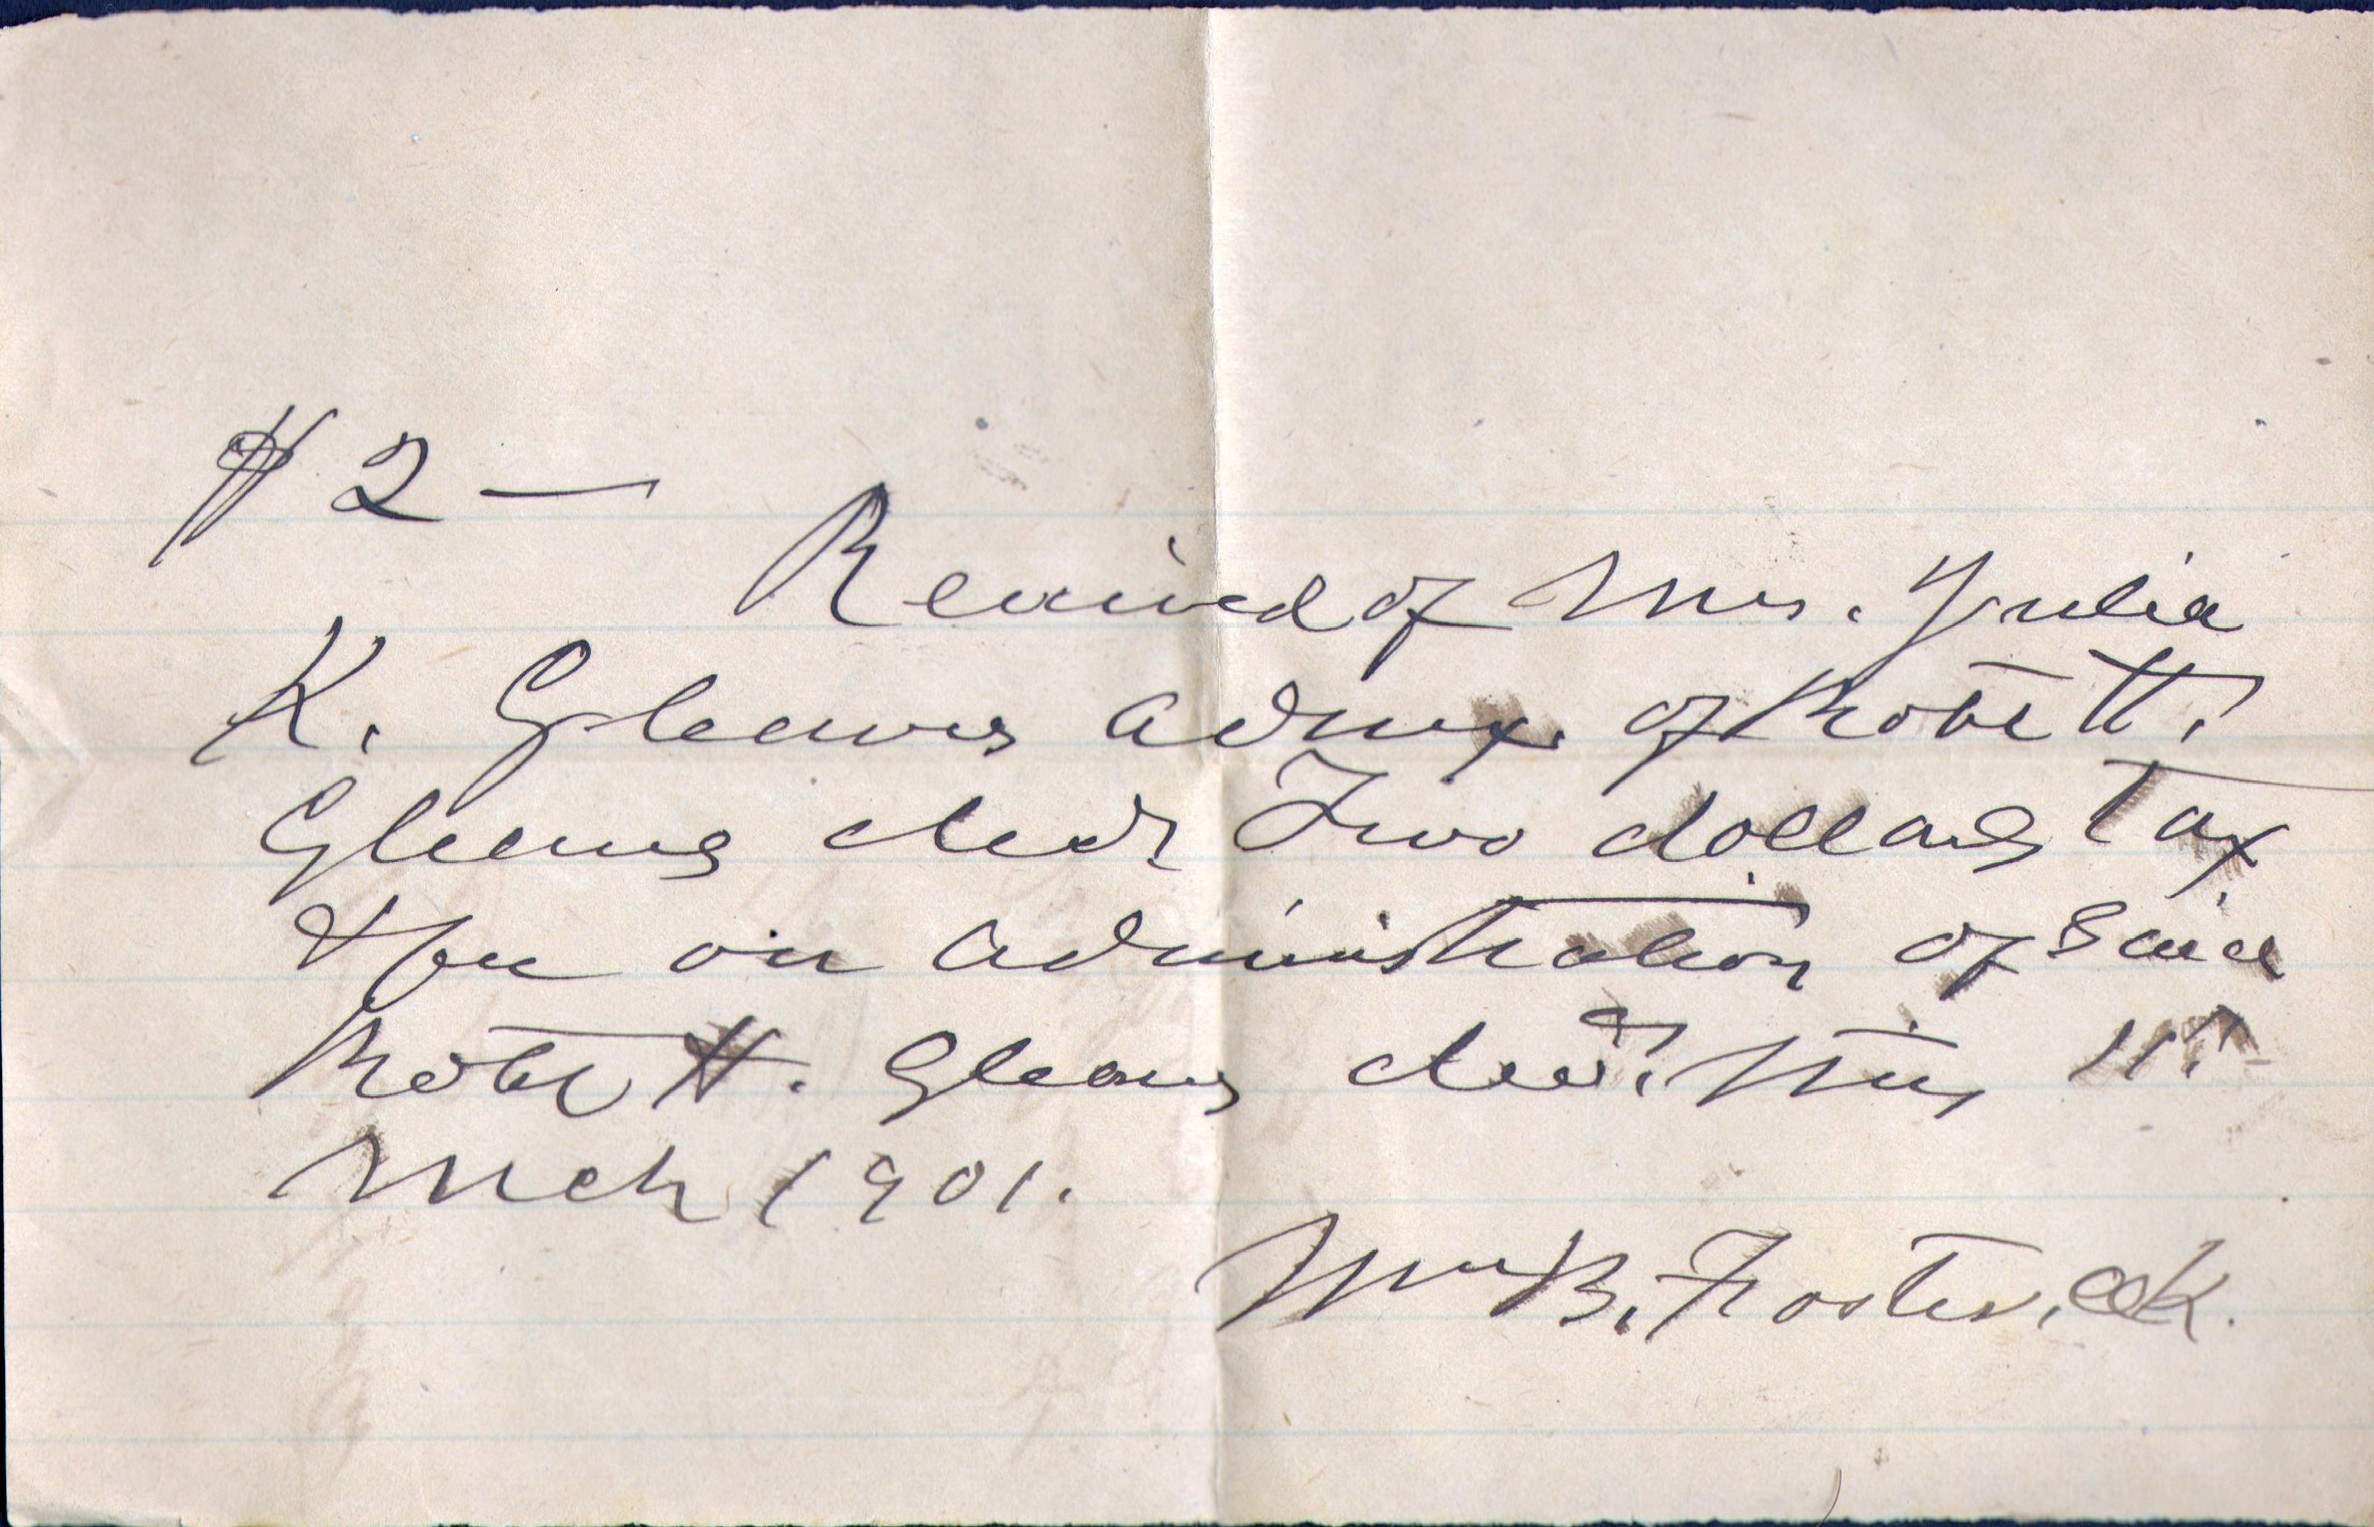 $2—
Received of Mrs. Julia
K. Gleaves admx. of Robt H.
Gleaves decd Two dollars Tax
& fee on administration of said
Robt H. Gleaves decd. this 11"
Mch 1901.
Wm B. Foster, Clk.